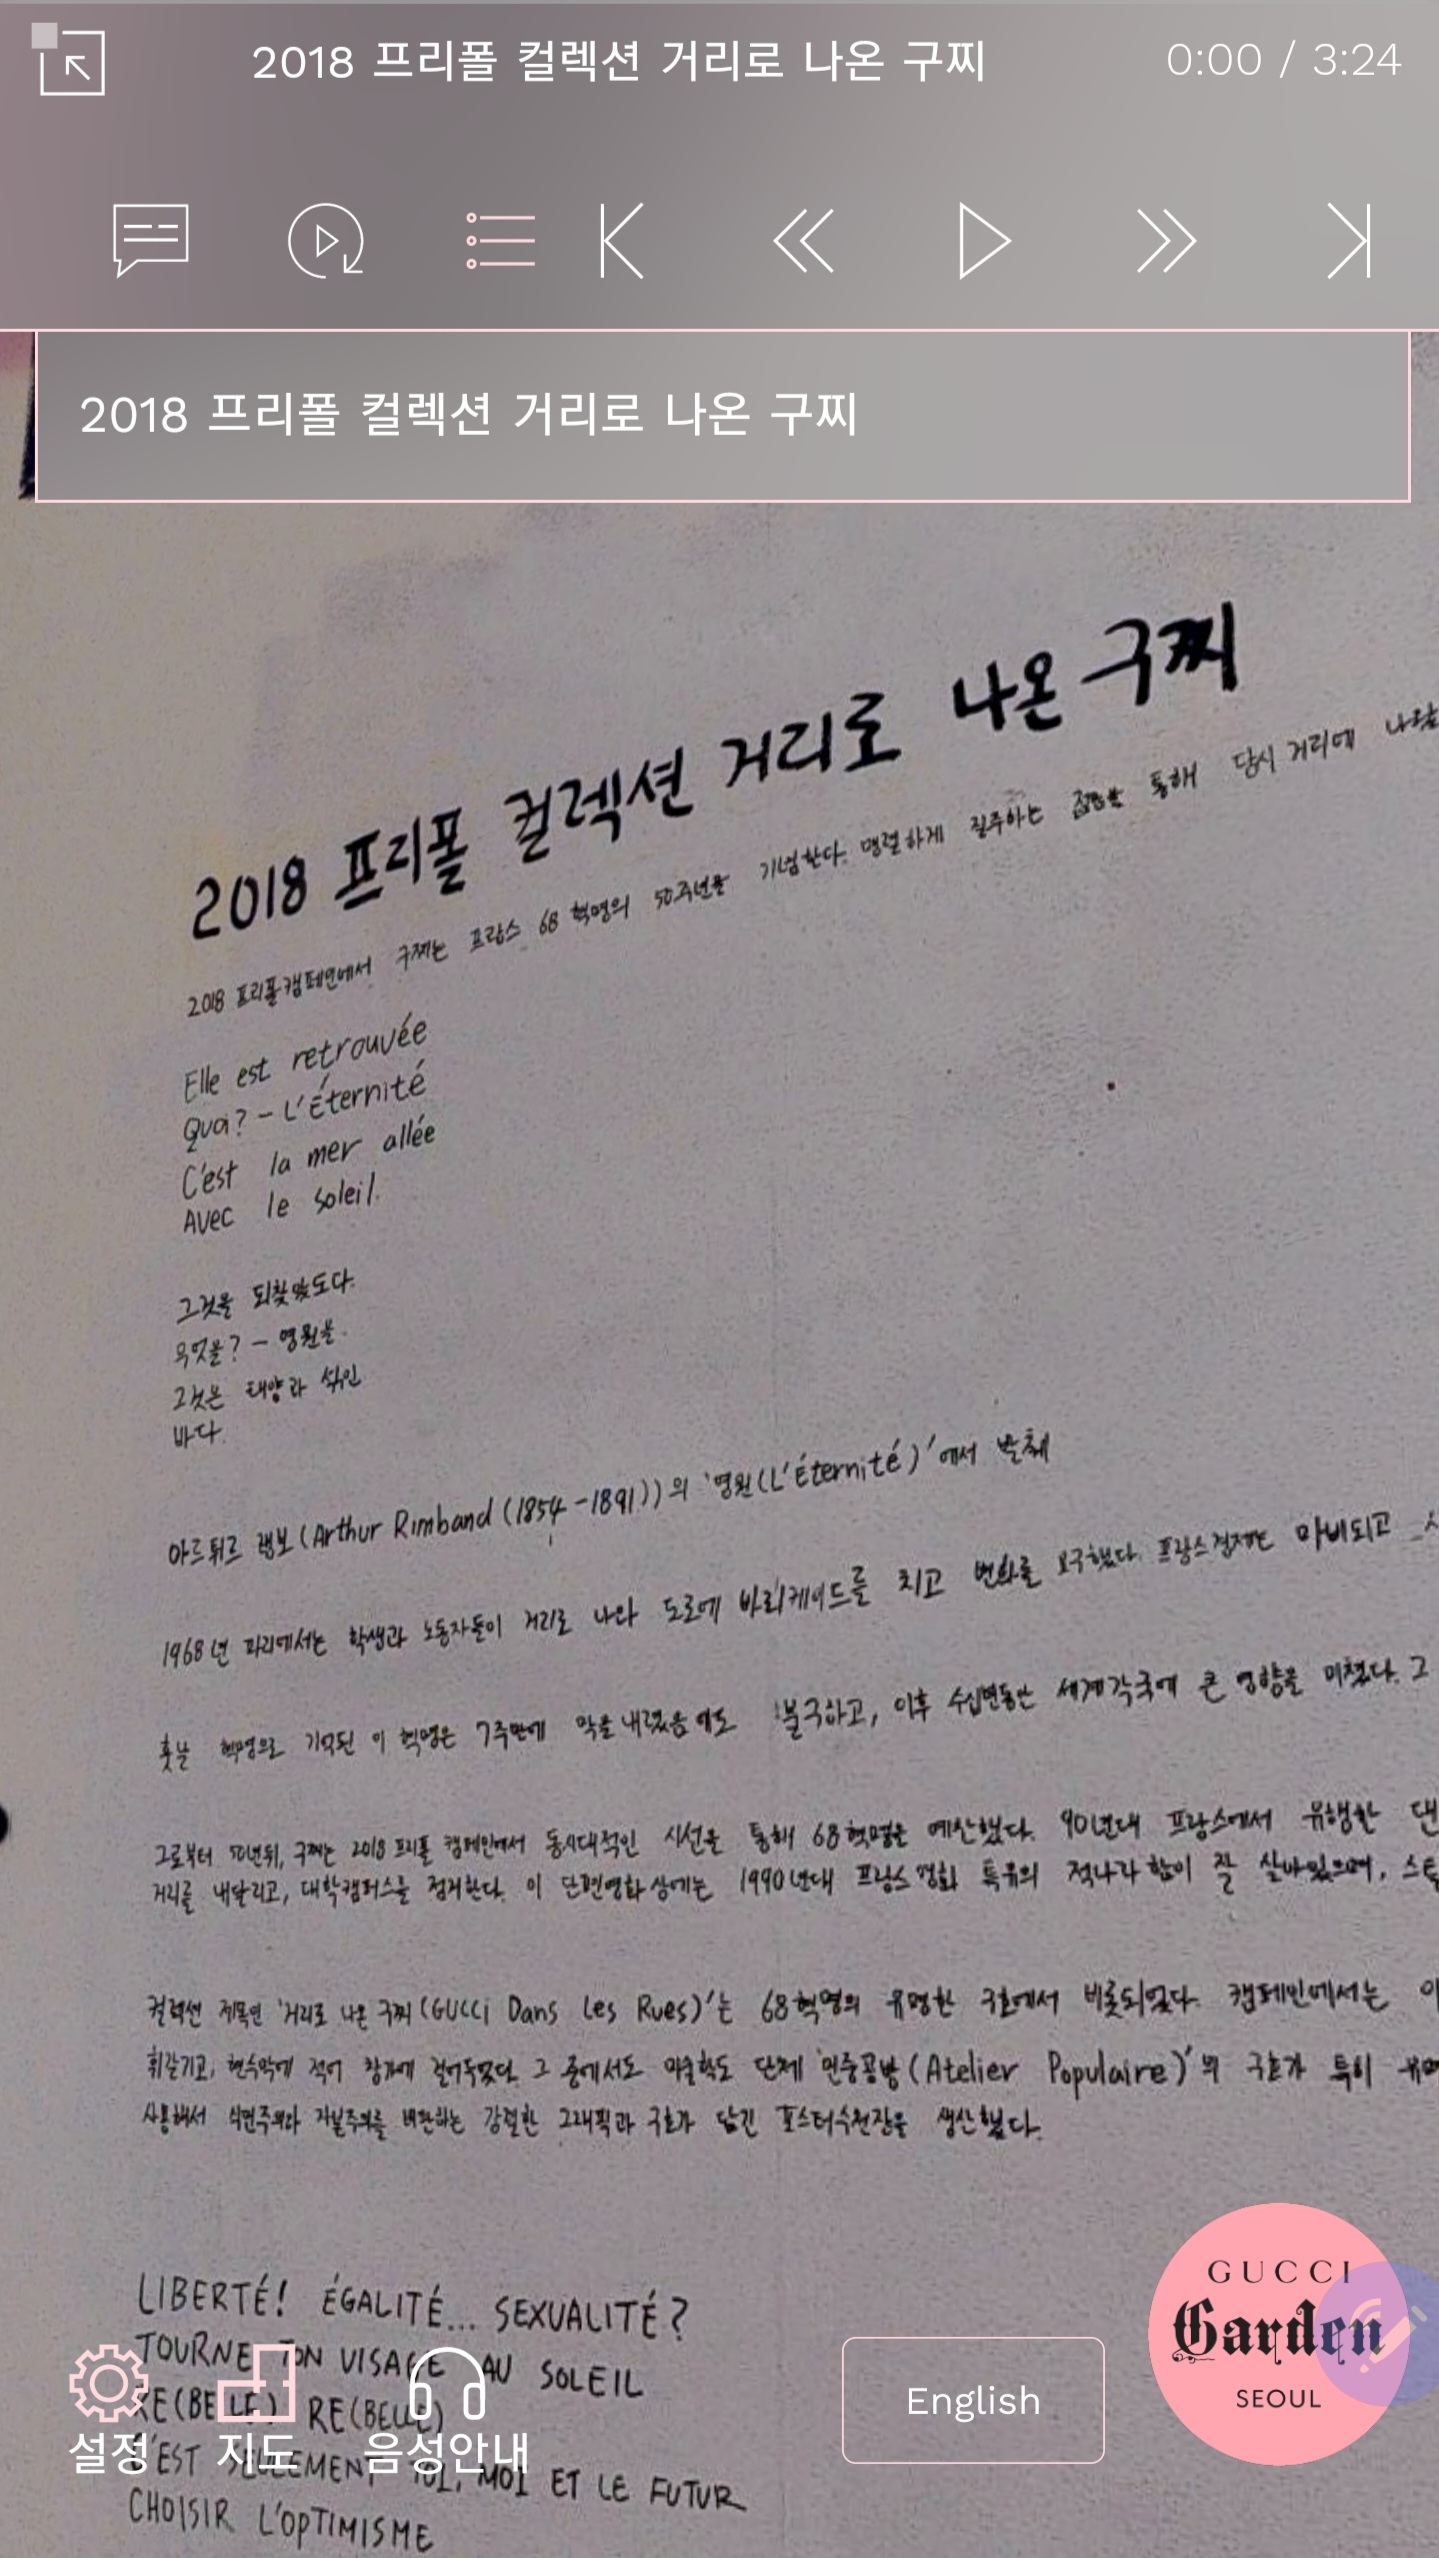 2018 프리폴 컬렉션 거리로 나온 구찌
0:00 / 3:24
2018 프리폴 컬렉션 거리로 나온 구찌
2018 프리폴 컬렉션 거리로 나온 구찌
2018 프리폴 캠페인에서 구찌는 프랑스 68 혁명의 50주년을 기념한다. 맹렬하게 질주하는 통해 당시 거리에
Elle est retrouvée
Quoi? - L'Éternité
C'est la mer allée
Avec le soleil.
그것을 되찾았도다.
무엇을? - 영원을.
그것은 태양과 섞인
바다.
아르튀르 랭보 (Arthur Rimband (1854-1891))의 '영원(L'Éternité)'에서 발췌
1968년 파리에서는 학생과 노동자들이 거리로 나와 도로에 바리케이드를 치고 변화를 요구했다. 프랑스 경제는 마비되고
훗날 혁명으로 기억된 이 혁명은 7주만에 막을 내렸음에도 불구하고, 이후 수십년동안 세계각국에 큰 영향을 미쳤다. 그
그로부터 50년뒤, 구찌는 2018 프리폴 캠페인에서 동시대적인 시선을 통해 68혁명을 예찬했다. 90년대 프랑스에서 유행한 댄
거리를 내달리고, 대학캠퍼스를 점거한다. 이 단편영화상에는 1990년대 프랑스 영화 특유의 적나라함이 잘 살아있으며,
컬렉션 제목인 '거리로 나온 구찌 (GUCCI Dans Les Rues)'는 68혁명의 유명한 구호에서 비롯되었다. 캠페인에서는
휘갈기고, 현수막에 적어 창가에 걸어두었다. 그 중에서도 미술학도 단체 '민중공방(Atelier Populaire)'의 구호가 특히
사용해서 식민주의와 자본주의를 비판하는 강렬한 그래픽과 구호가 담긴 포스터수천장을 생산했다.
LIBERTÉ! ÉGALITÉ... SEXUALITÉ?
TOURNE TON VISAGE AU SOLEIL
RE(BELLE) RE(BELLE)
C'EST SEULEMENT TOI, MOI ET LE FUTUR
CHOISIR L'OPTIMISME
설정 지도 음성안내
English
GUCCI
Garden
SEOUL